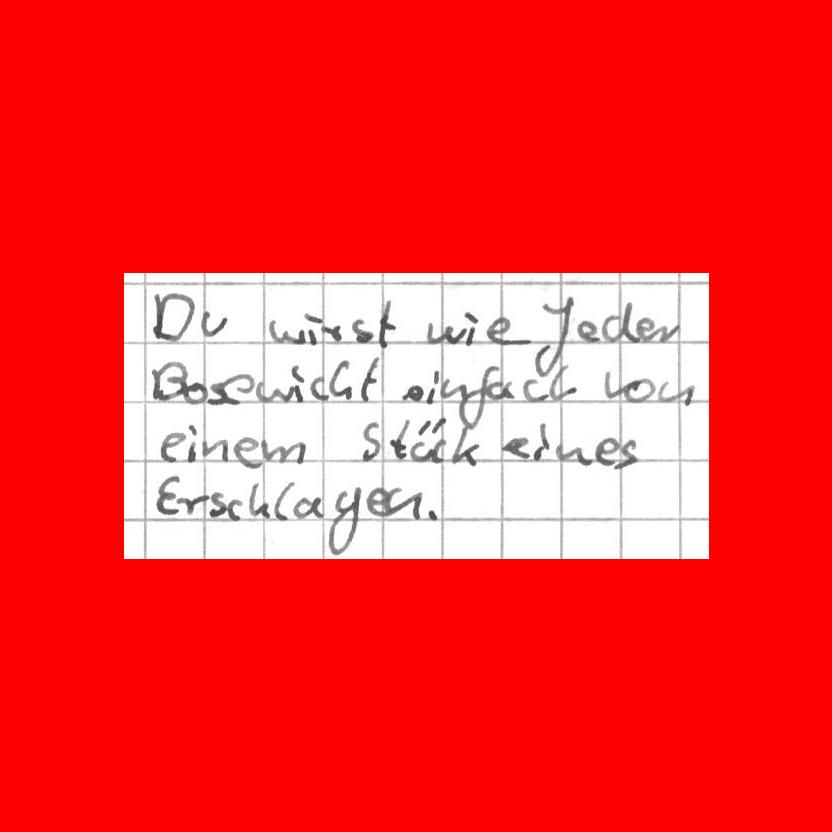 Du wirst wie Jeder
Bosewicht einfach von
einem Stück eines
Erschlagen.